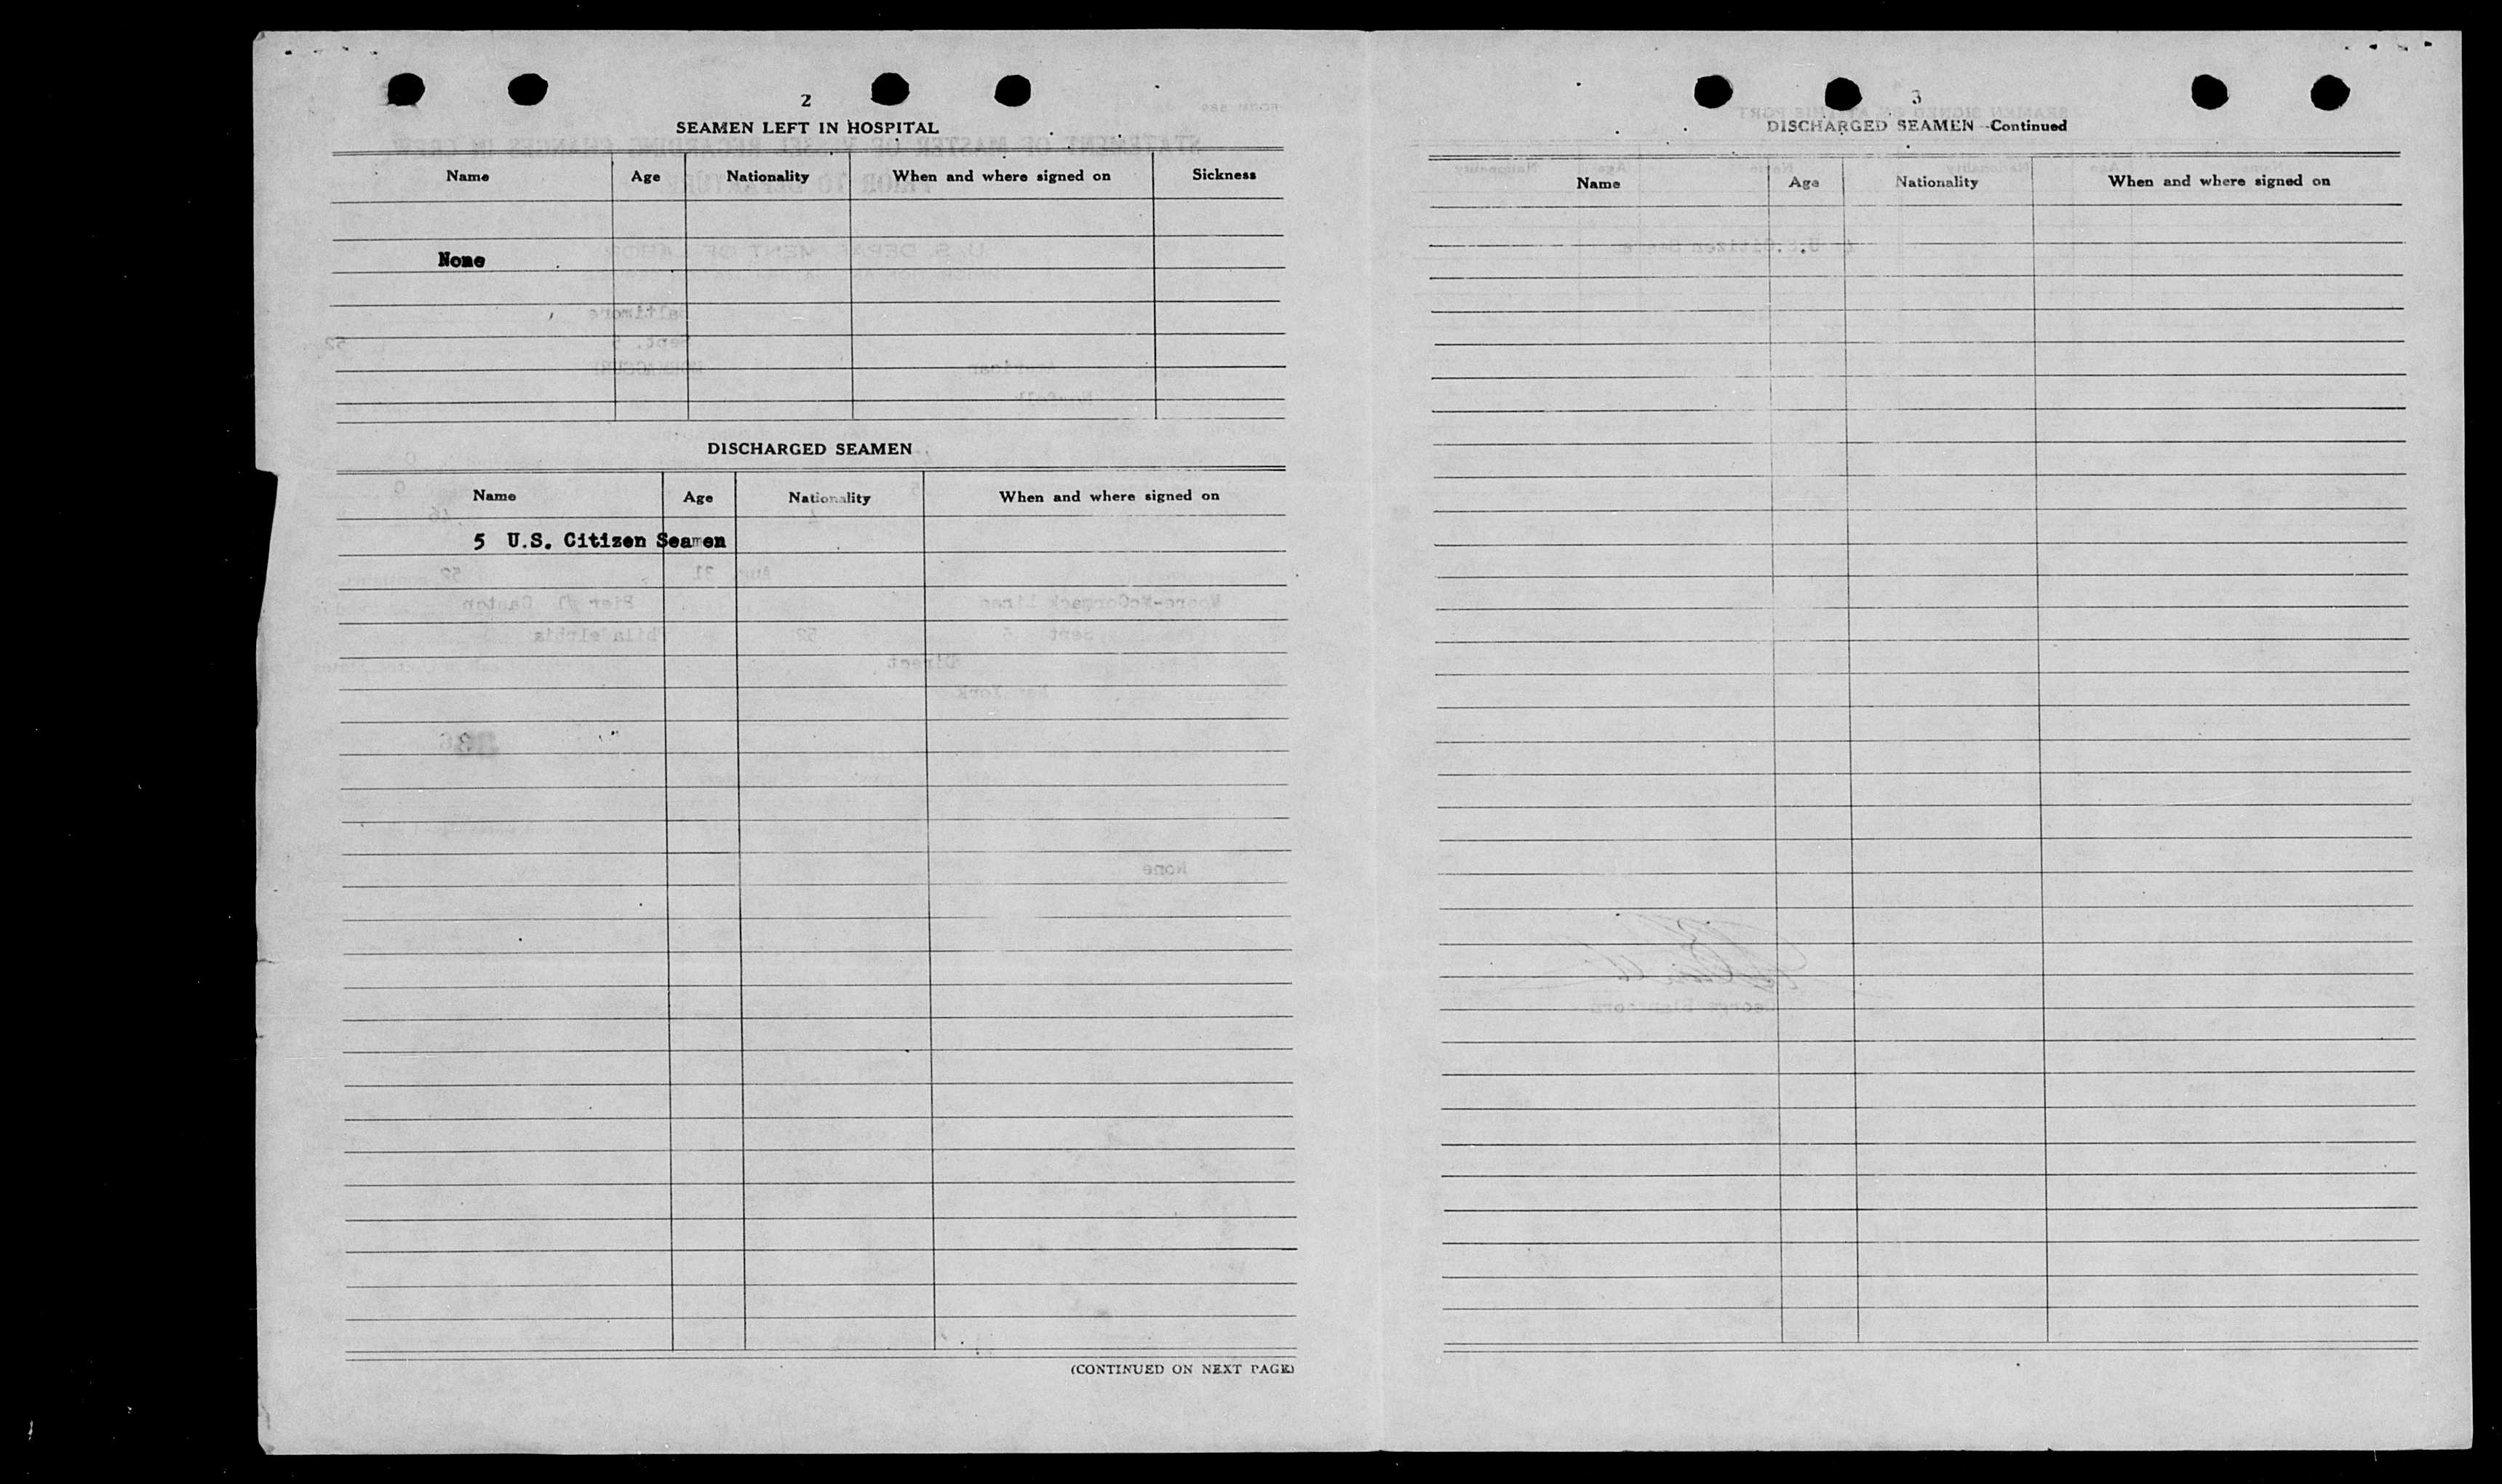 2
SEAMEN LEFT IN HOSPITAL
Name Age Nationality When and where signed on Sickness
None
DISCHARGED SEAMEN
Name Age Nationality When and where signed on
5 U.S. Citizen Seamen
(CONTINUED ON NEXT PAGE)
3
DISCHARGED SEAMEN—Continued
Name Age Nationality When and where signed on